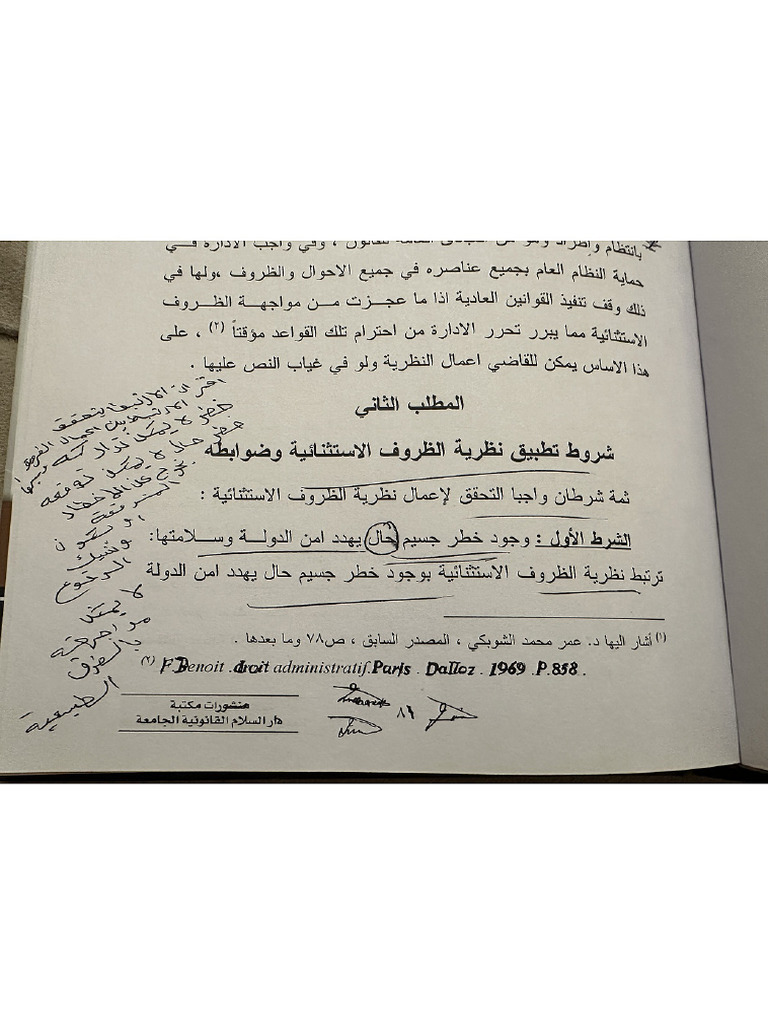 بانتظام وإطراد وهو من المبادئ العامة للقانون ، وفي واجب الادارة في
حماية النظام العام بجميع عناصره في جميع الاحوال والظروف ،ولها في
ذلك وقف تنفيذ القوانين العادية اذا ما عجزت من مواجهة الظروف
الاستثنائية مما يبرر تحرر الادارة من احترام تلك القواعد مؤقتاً (٢) ، على
هذا الاساس يمكن للقاضي اعمال النظرية ولو في غياب النص عليها .
المطلب الثاني
شروط تطبيق نظرية الظروف الاستثنائية وضوابطه
ثمة شرطان واجبا التحقق لإعمال نظرية الظروف الاستثنائية :
الشرط الأول : وجود خطر جسيم حال يهدد امن الدولة وسلامتها:
ترتبط نظرية الظروف الاستثنائية بوجود خطر جسيم حال يهدد امن الدولة
(١) أشار اليها د. عمر محمد الشوبكي ، المصدر السابق ، ص٧٨ وما بعدها .
(٢) F.Benoit .droit administratif.Paris . Dalloz . 1969 .P.858 .
منشورات مكتبة
دار السلام القانونية الجامعة
٨٦
خطر لا يمكن
خطر حال لا يمكن توقعه
او تكون
وشيك
الوقوع
لا يمكن
مواجهته
بالطرق
الطبيعية